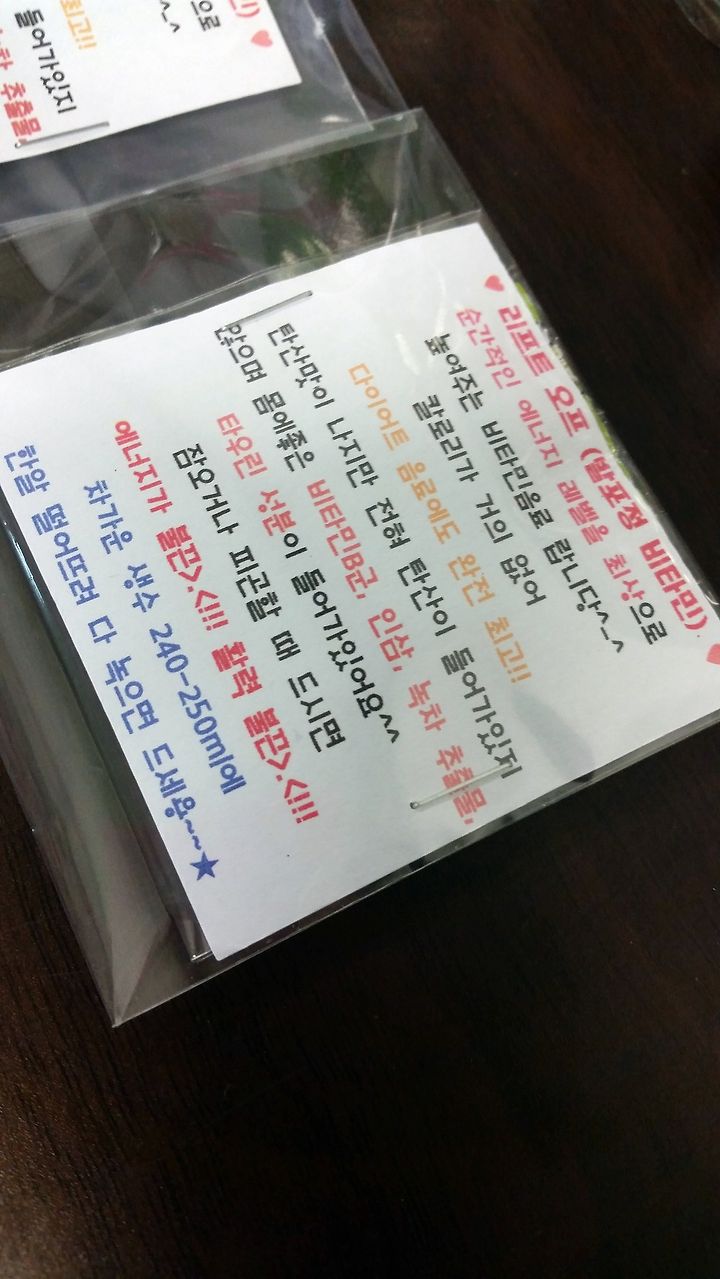 ♥ 리프트 오프 (발포정 비타민) ♥
순간적인 에너지 레벨을 최상으로
높여주는 비타민음료 랍니당^_^
칼로리가 거의 없어
다이어트 음료에도 완전 최고!!
탄산맛이 나지만 전혀 탄산이 들어가있지
않으며 몸에좋은 비타민B군, 인삼, 녹차 추출물,
타우린 성분이 들어가있어요^^
잠오거나 피곤할 때 드시면
에너지가 불끈>.<!!! 활력 불끈>.<!!!
차가운 생수 240-250ml에
한알 떨어뜨려 다 녹으면 드세용~~★
민) ♥
으로
^_^
최고!!
들어가있지
추출물,